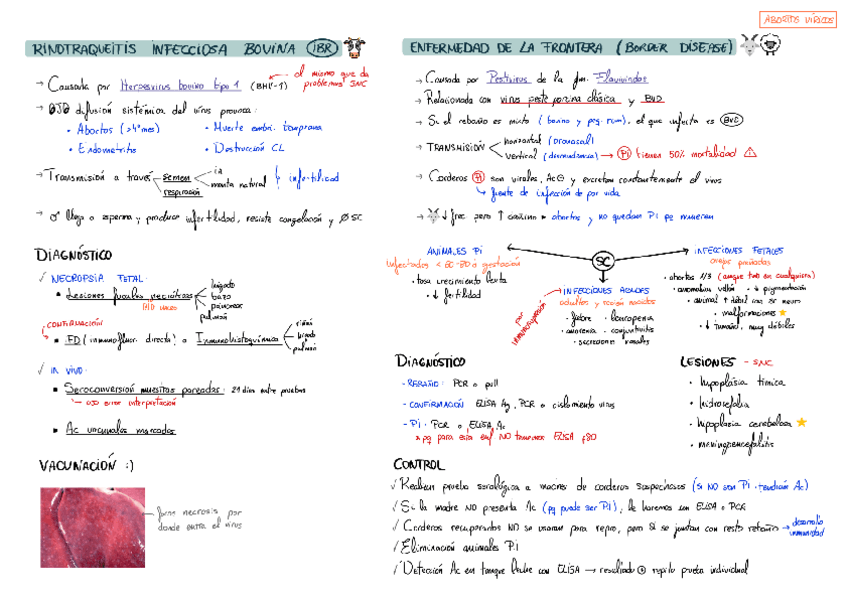 ABORTOS VÍRICOS
RINOTRAQUEITIS INFECCIOSA BOVINA (IBR)
→ Causada por Herpesvirus bovino tipo 1 (BHV-1) ← el mismo que da problemas SNC
→ OJO difusión sistémica del virus provoca:
• Abortos (>4º mes) • Muerte embri. temprana
• Endometritis • Destrucción CL
→ Transmisión a través semen ia monta natural infertilidad
respiración
→ ♂ llega a esperma y produce infertilidad, resiste congelación y Ø SC
DIAGNÓSTICO
✓ NECROPSIA FETAL:
• Lesiones focales necróticas hígado bazo pulmón
CONFIRMACIÓN
• IFD (inmunofluor. directa) o Inmunohistoquímica riñón hígado pulmón
✓ IN VIVO:
• Seroconversión muestras pareadas: 21 días entre pruebas
OJO error interpretación
• Ac vacunales marcados
VACUNACIÓN :)
zona necrosis por donde entra el virus
ENFERMEDAD DE LA FRONTERA (BORDER DISEASE)
→ Causada por Pestivirus de la fam. Flaviviridae
→ Relacionada con virus peste porcina clásica y BVD
→ Si el rebaño es mixto (bovino y peq. rum), el que infecta es BVD
→ TRANSMISIÓN horizontal (oronasal)
vertical (diaplacentaria) → PI tienen 50% mortalidad
→ Corderos PI son virales, Ac⊖ y excretan constantemente el virus
↳ fuente de infección de por vida
→ ↓ frec pero ↑ abortos y no quedan PI pq mueren
SC
ANIMALES PI
Infectados < 60-80 d gestación
• tasa crecimiento lenta
• ↓ fertilidad
INFECCIONES AGUDAS
adultos y recién nacidos
por inmunosupresión
• fiebre • leucopenia
• anorexia • conjuntivitis
• secreciones nasales
INFECCIONES FETALES
ovejas preñadas
• abortos 1/3 (aunque tb en cualquiera)
• anomalías vellón • ↓ pigmentación
• animal ↑ débil con SC neuro
• malformaciones
• ↓ tamaño, muy débiles
DIAGNÓSTICO
- REBAÑO: PCR a pull
- CONFIRMACIÓN: ELISA Ag, PCR o aislamiento virus
- PI: PCR o ELISA Ac
* pq para esta enf NO tenemos ELISA p80
LESIONES - SNC
• hipoplasia tímica
• hidrocefalia
• hipoplasia cerebelosa
• meningoencefalitis
CONTROL
✓ Realizar prueba serológica a madres de corderos sospechosos (si NO son PI tendrán Ac)
✓ Si la madre NO presenta Ac (pq puede ser PI), le haremos con ELISA o PCR
✓ Corderos recuperados NO se usaran para repro, pero SI se juntan con resto rebaño → desarrollo inmunidad
✓ Eliminación animales PI
✓ Detección Ac en tanque leche con ELISA → resultado ⊕ repito prueba individual